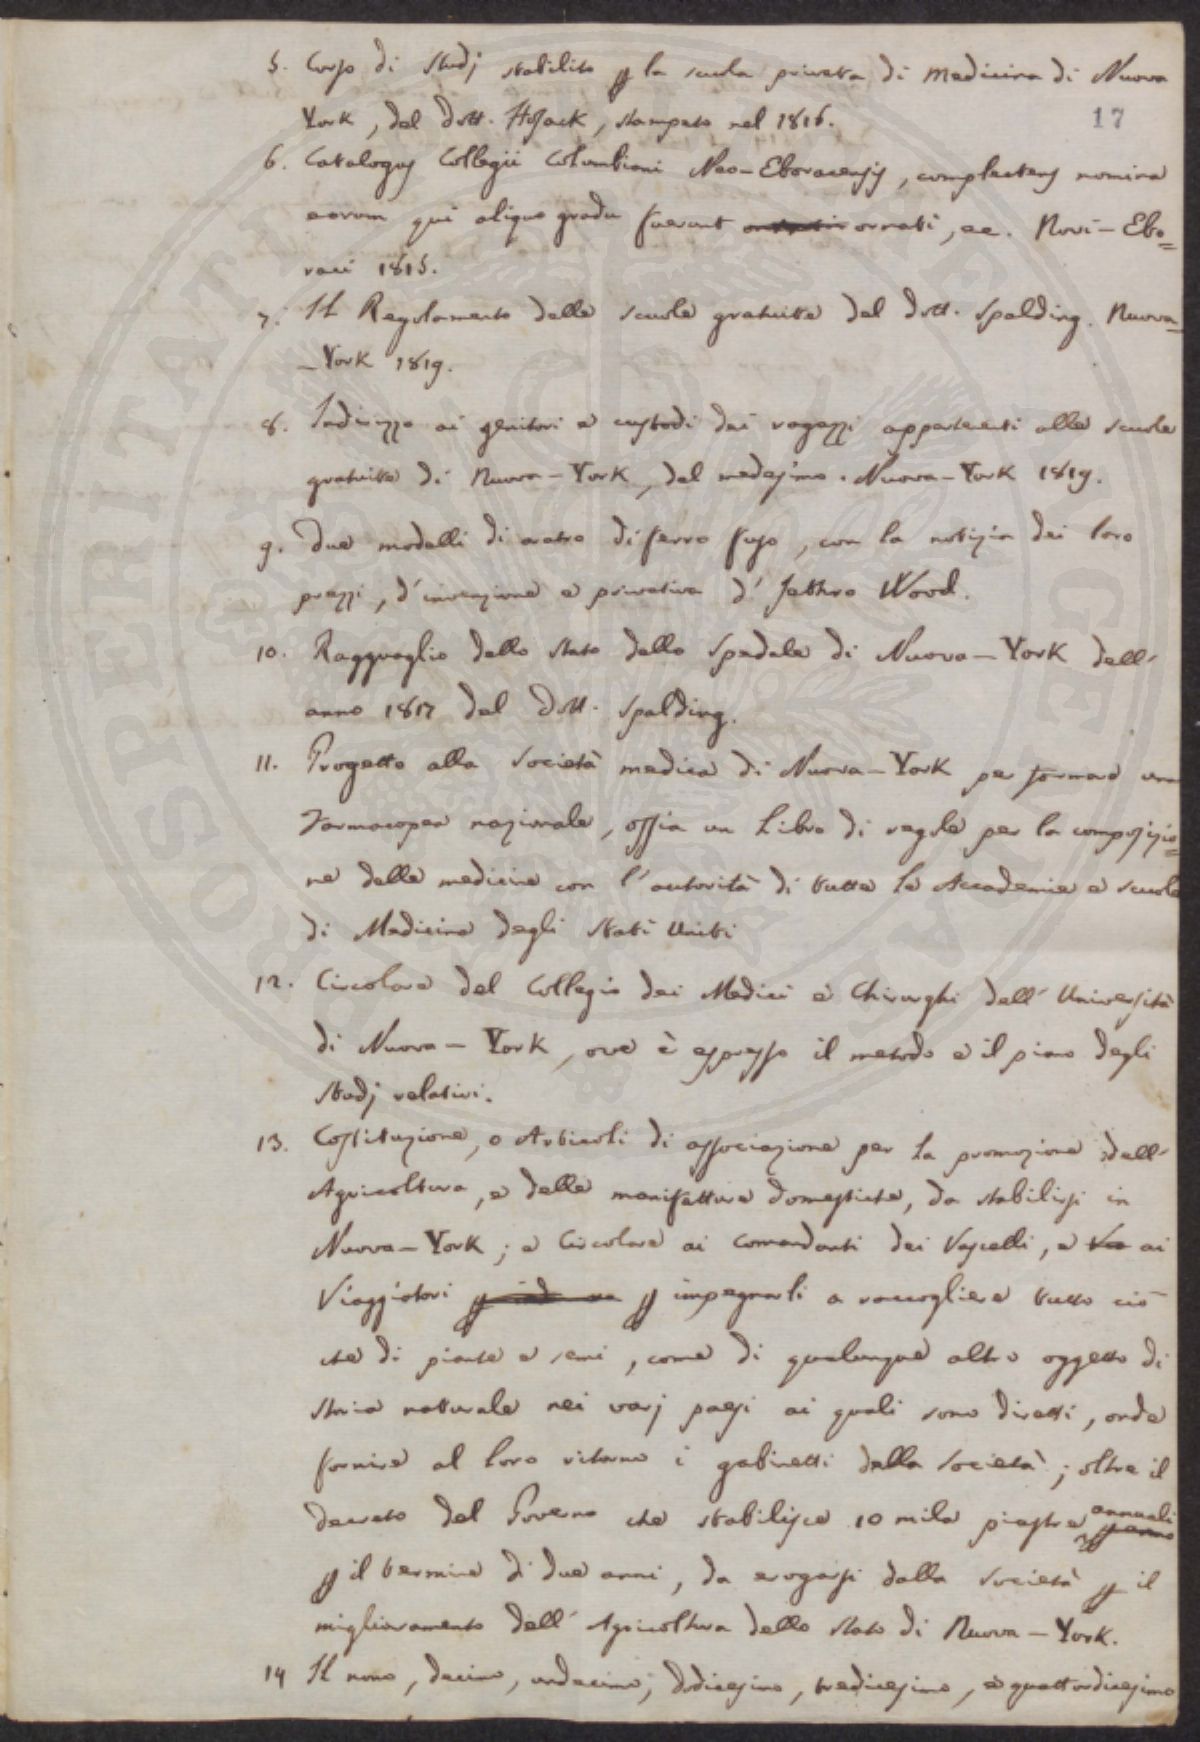 5. Corso di Studj stabilito p la scuola privata di Medicina di Nuova
York, dal Dott. Hosack, stampato nel 1816.
17
6. Catalogus Collegii Columbiani Neo-Eboracensis, complectens nomina
eorum qui aliquo gradu fuerunt ornati, ec. Novi-Ebo=
raci 1815.
7. Il Regolamento delle scuole gratuite del Dott. Spalding. Nuova-
-York 1819.
8. Indirizzo ai genitori e custodi dei ragazzi appartenenti alle scuole
gratuite di Nuova-York, del medesimo. Nuova-York 1819.
9. Due modelli di aratro di ferro fuso, con la notizia dei loro
prezzi, d'invenzione e privativa d' Jethro Wood.
10. Ragguaglio dello stato dello Spedale di Nuova-York dell'
anno 1817 del Dott. Spalding.
11. Progetto alla Società medica di Nuova-York per formare una
Farmacopea nazionale, ossia un Libro di regole per la composizio=
ne delle medicine con l'autorità di tutte le Accademie e scuole
di Medicina degli Stati Uniti
12. Circolare del Collegio dei Medici e Chirurghi dell' Università
di Nuova-York, ove è espresso il metodo e il piano degli
studj relativi.
13. Costituzione, o Articoli di associazione per la promozione dell'
Agricoltura, e delle manifatture domestiche, da stabilirsi in
Nuova-York; e Circolare ai Comandanti dei Vascelli, e ai
Viaggiatori p impegnarli a raccogliere tutto ciò
che di piante e semi, come di qualunque altro oggetto di
storia naturale nei varj paesi ai quali sono diretti, onde
fornire al loro ritorno i gabinetti della Società; oltre il
decreto del Governo che stabilisce 10 mila piastre annuali
p il termine di due anni, da erogarsi dalla Società p il
miglioramento dell' Agricoltura dello stato di Nuova-York.
14 Il nono, decimo, undecimo, dodicesimo, tredicesimo, e quattordicesimo
PROSPERITATI